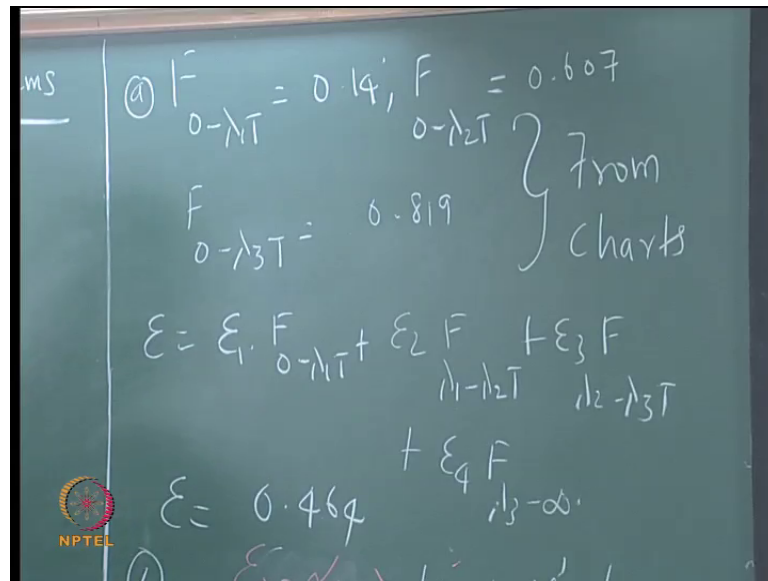 ms
ⓐ F 0-λ₁T = 0.14, F 0-λ₂T = 0.607
F 0-λ₃T = 0.819 } From charts
ε = ε₁. F 0-λ₁T + ε₂ F λ₁-λ₂T + ε₃ F λ₂-λ₃T
+ ε₄ F λ₃-∞.
ε = 0.464
NPTEL